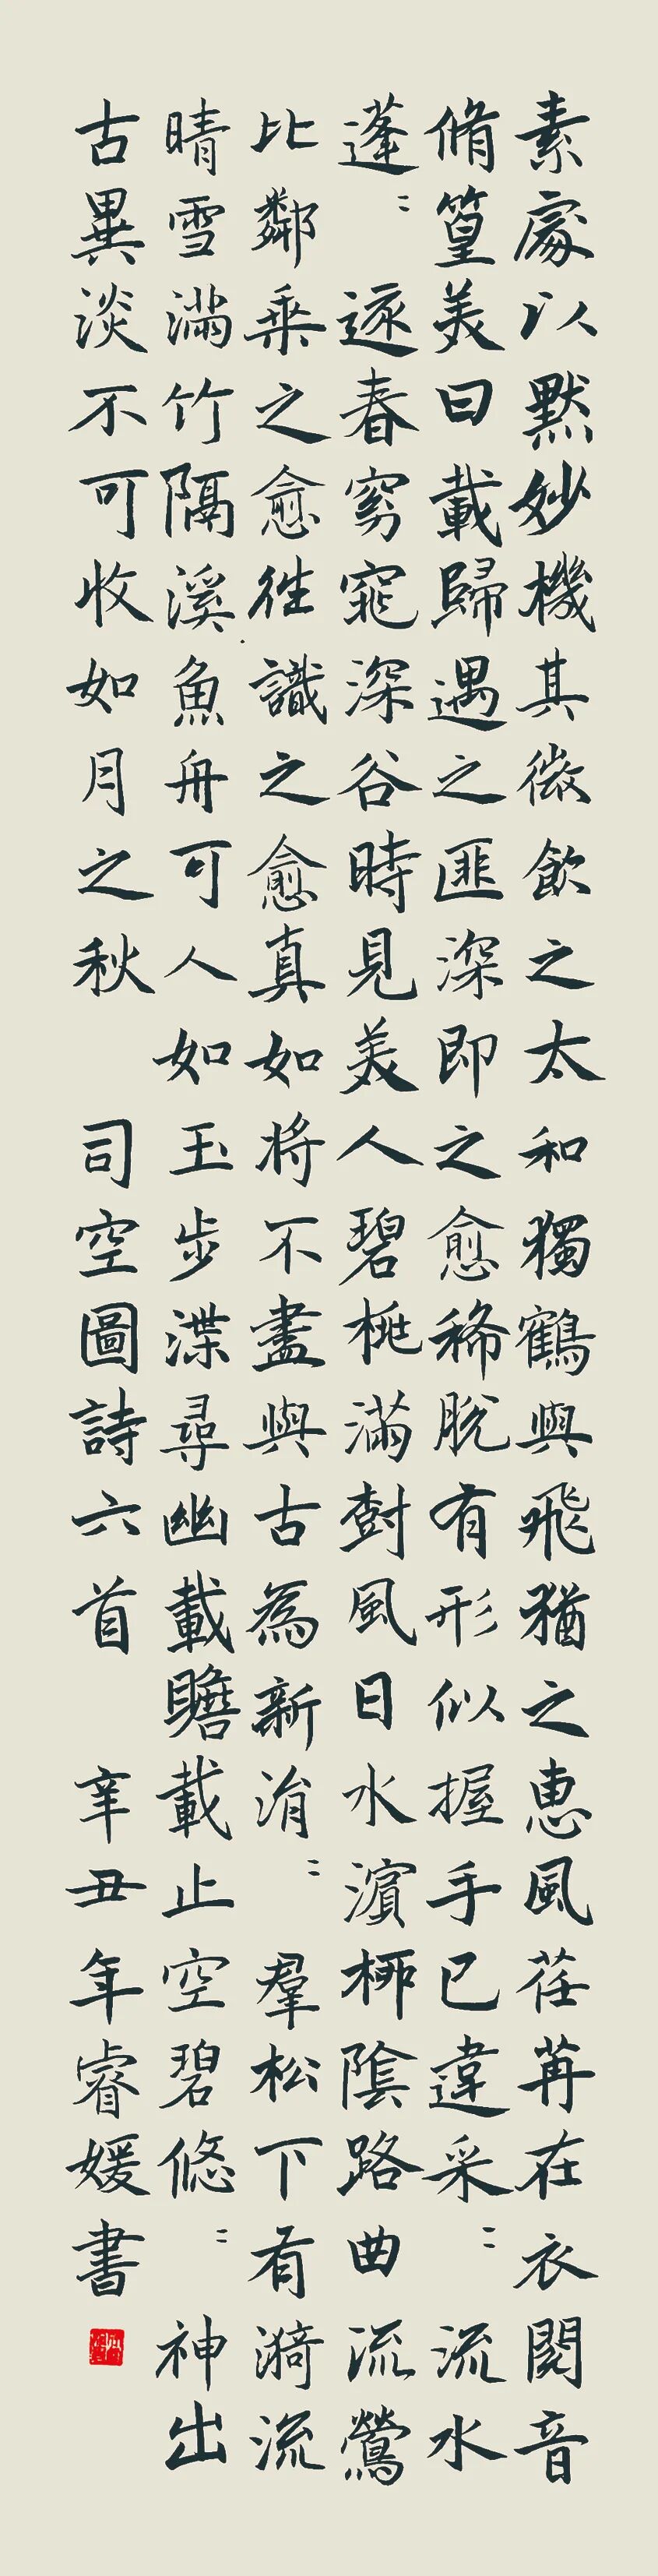 素處以默妙機其微飲之太和獨鶴與飛猶之惠風荏苒在衣閱音
脩篁美曰載歸遇之匪深即之愈稀脫有形似握手已違采〻流水
蓬〻遠春窈窕深谷時見美人碧桃滿樹風日水濱柳陰路曲流鶯
比鄰乘之愈往識之愈真如將不盡與古為新涓〻羣松下有漪流
晴雪滿竹隔溪魚舟可人如玉步渫尋幽載瞻載止空碧悠〻神出
古異淡不可收如月之秋 司空圖詩六首 辛丑年睿媛書